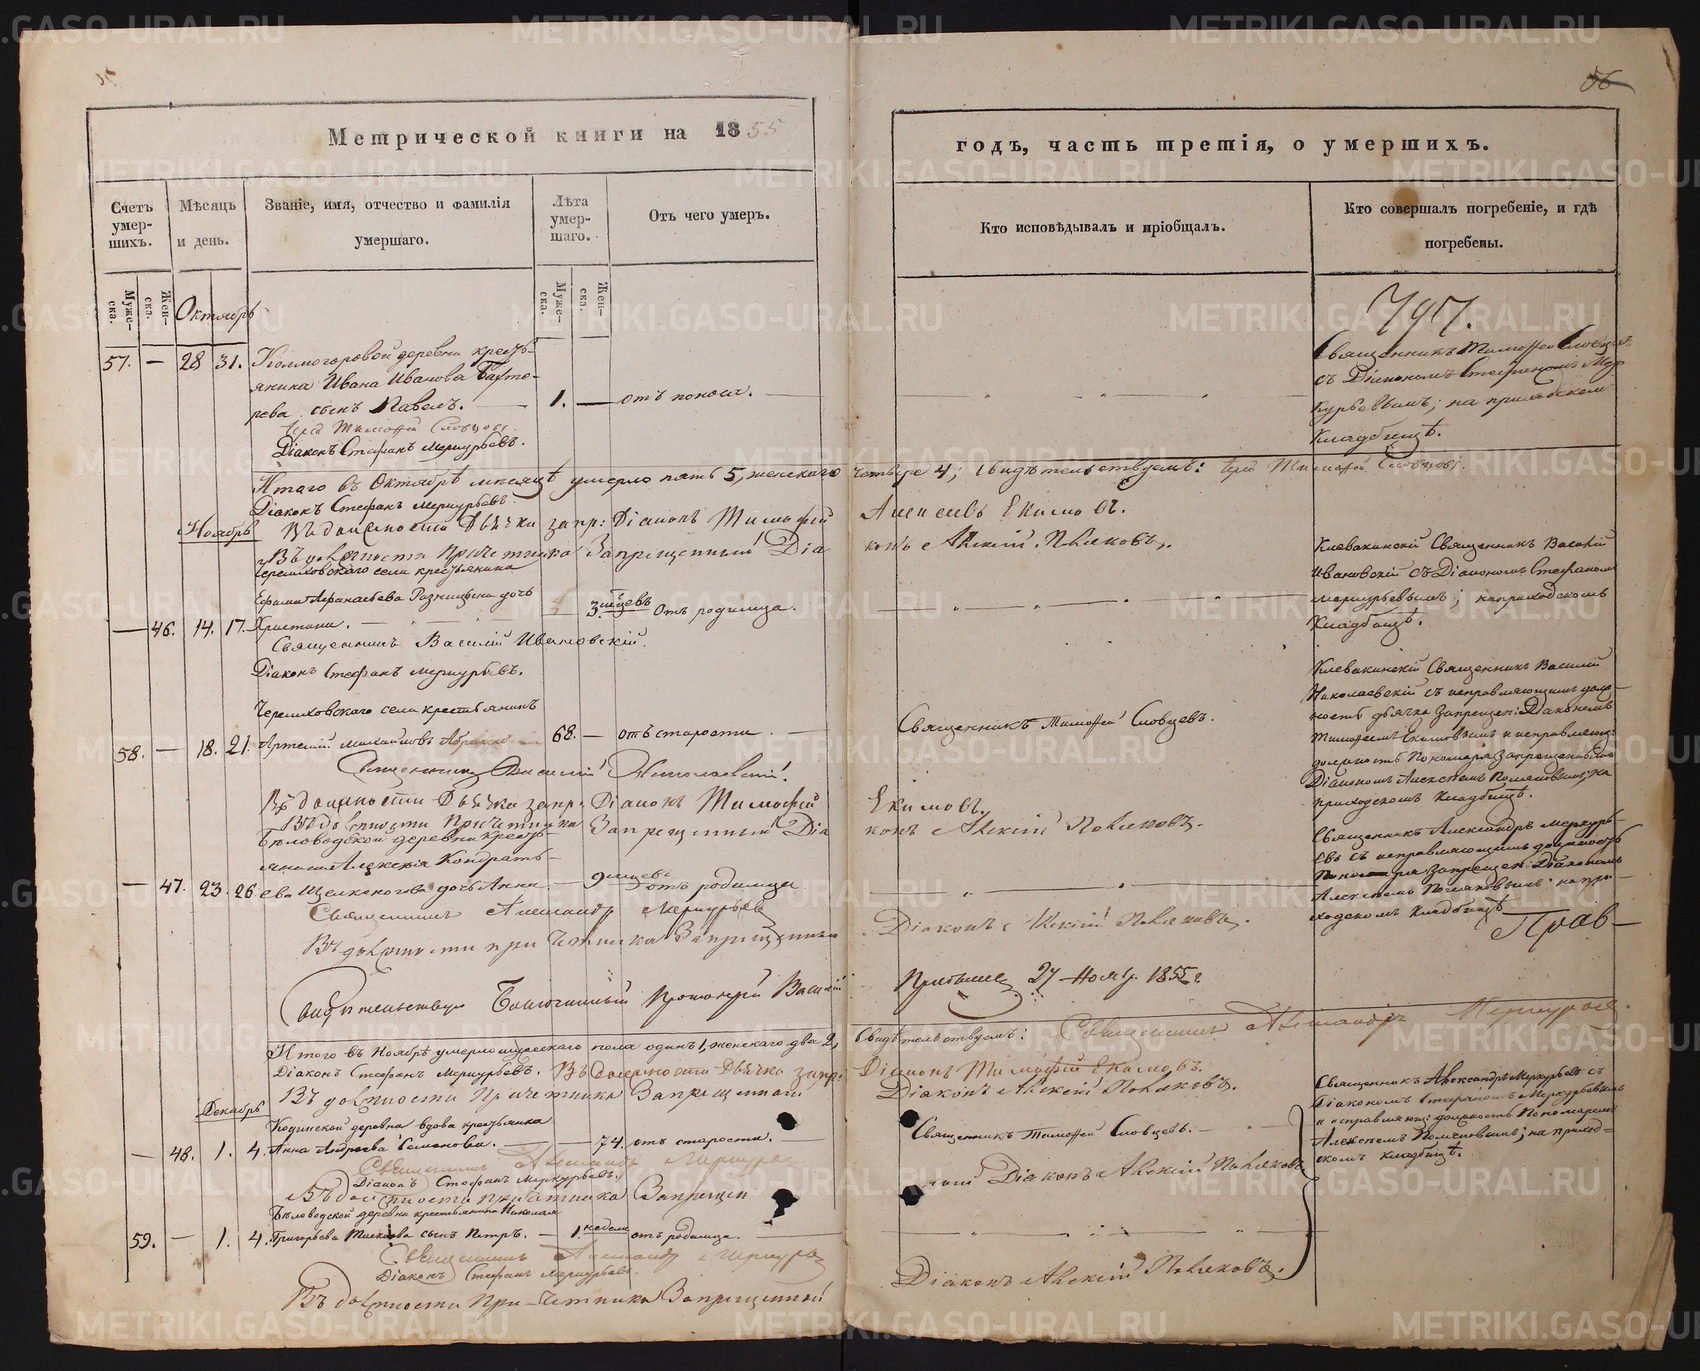 Метрической книги на 1855
годъ, часть третія, о умершихъ.
56
Счетъ умер-шихъ.
Мѣсяцъ и день.
Званіе, имя, отчество и фамилія умершаго.
Лѣта умер-шаго.
Отъ чего умеръ.
Кто исповѣдывалъ и пріобщалъ.
Кто совершалъ погребеніе, и гдѣ погребены.
Муже-ска.
Жен-ска.
Муже-ска.
Жен-ска.
Октябрь
57. — 28 31. Колмогоровой деревни кресть-
янина Ивана Иванова
сынъ Павелъ. — 1. — отъ поноса. —
Іерей Тимофей Словцовъ.
Діаконъ Стефанъ Меркурьевъ.
Священникъ Тимофей Словцовъ
съ Діакономъ Стефаномъ Мер-
курьевымъ; на приходскомъ
кладбищѣ.
Итого въ Октябрѣ мѣсяцѣ умерло пять 5, женскаго четыре 4; свидѣтельствуемъ: Іерей Тимофей Словцовъ.
Діаконъ Стефанъ Меркурьевъ.
Ноябрь
Въ должности Дьячка запр: Діаконъ Тимофей Алексѣевъ Екимовъ.
Въ должности Причетника Запрещенный Діаконъ Алексій Поляковъ.
Черемховскаго села крестьянина
Ефима Афанасьева дочь
— 46. 14. 17. Христина. — 3. мѣсяцевъ Отъ родимца.
Священникъ Василій Ивановскій.
Діаконъ Стефанъ Меркурьевъ.
Клевакинскій Священникъ Василій
Ивановскій съ Діакономъ Стефаномъ
Меркурьевымъ; на приходскомъ
кладбищѣ.
Черемховскаго села крестьянинъ
58. — 18. 21. Артемій Михайловъ 68. — отъ старости. —
Священникъ Тимофей Словцовъ.
Священникъ Василій Николаевскій.
Въ должности Дьячка запр. Діаконъ Тимофей Екимовъ.
Въ должности Причетника Запрещенный Діаконъ Алексій Поляковъ.
Клевакинскій Священникъ Василій
Николаевскій съ исправляющимъ долж-
ность дьячка Запрещен: Діакономъ
Тимофеемъ Екимовымъ и исправляющ:
должность Пономаря Запрещеннымъ
Діакономъ Алексѣемъ Поляковымъ на
приходскомъ кладбищѣ.
Бѣловодской деревни кресть-
янина Алексѣя Кондрать-
— 47. 23. 26 ева Щелконогова дочь Анна. — 9 мѣсяцевъ отъ родимца
Священникъ Александръ Меркурьевъ
Въ должности причетника Запрещенный Діаконъ Алексій Поляковъ.
Священникъ Александръ Меркурь-
евъ съ исправляющимъ должность
Пономаря Запрещен: Діакономъ
Алексѣемъ Поляковымъ на при-
ходскомъ кладбищѣ
Свидѣтельствую Благочинный Протоіерей Василій
27 Ноябр. 1855 г
Итого въ Ноябрѣ умерло мужескаго пола одинъ 1, женскаго два 2, Свидѣтельствуемъ: Священникъ Александръ Меркурьевъ.
Діаконъ Стефанъ Меркурьевъ. Въ Должности Дьячка запр: Діаконъ Тимофей Екимовъ.
Въ должности Причетника Запрещенный Діаконъ Алексій Поляковъ.
Декабрь
Кодинской деревни вдова крестьянка
— 48. 1. 4. Анна Андреева Семенова. — — 74. отъ старости. —
Священникъ Тимофей Словцовъ. —
Священникъ Александръ Меркурьевъ
Діаконъ Стефанъ Меркурьевъ.
Въ должности причетника Запрещенной Діаконъ Алексій Поляковъ
Священникъ Александръ Меркурьевъ съ
Діакономъ Стефаномъ Меркурьевымъ
и исправляющ: должность Пономаря
Алексѣемъ Поляковымъ; на приход-
скомъ кладбищѣ.
Бѣловодской деревни крестьянина Николая
59. — 1. 4. Григорьева сынъ Петръ. — 1. недели отъ родимца. —
Священникъ Александръ Меркурьевъ
Діаконъ Стефанъ Меркурьевъ.
Въ должности Причетника Запрещенный Діаконъ Алексій Поляковъ.
METRIKI.GASO-URAL.RU